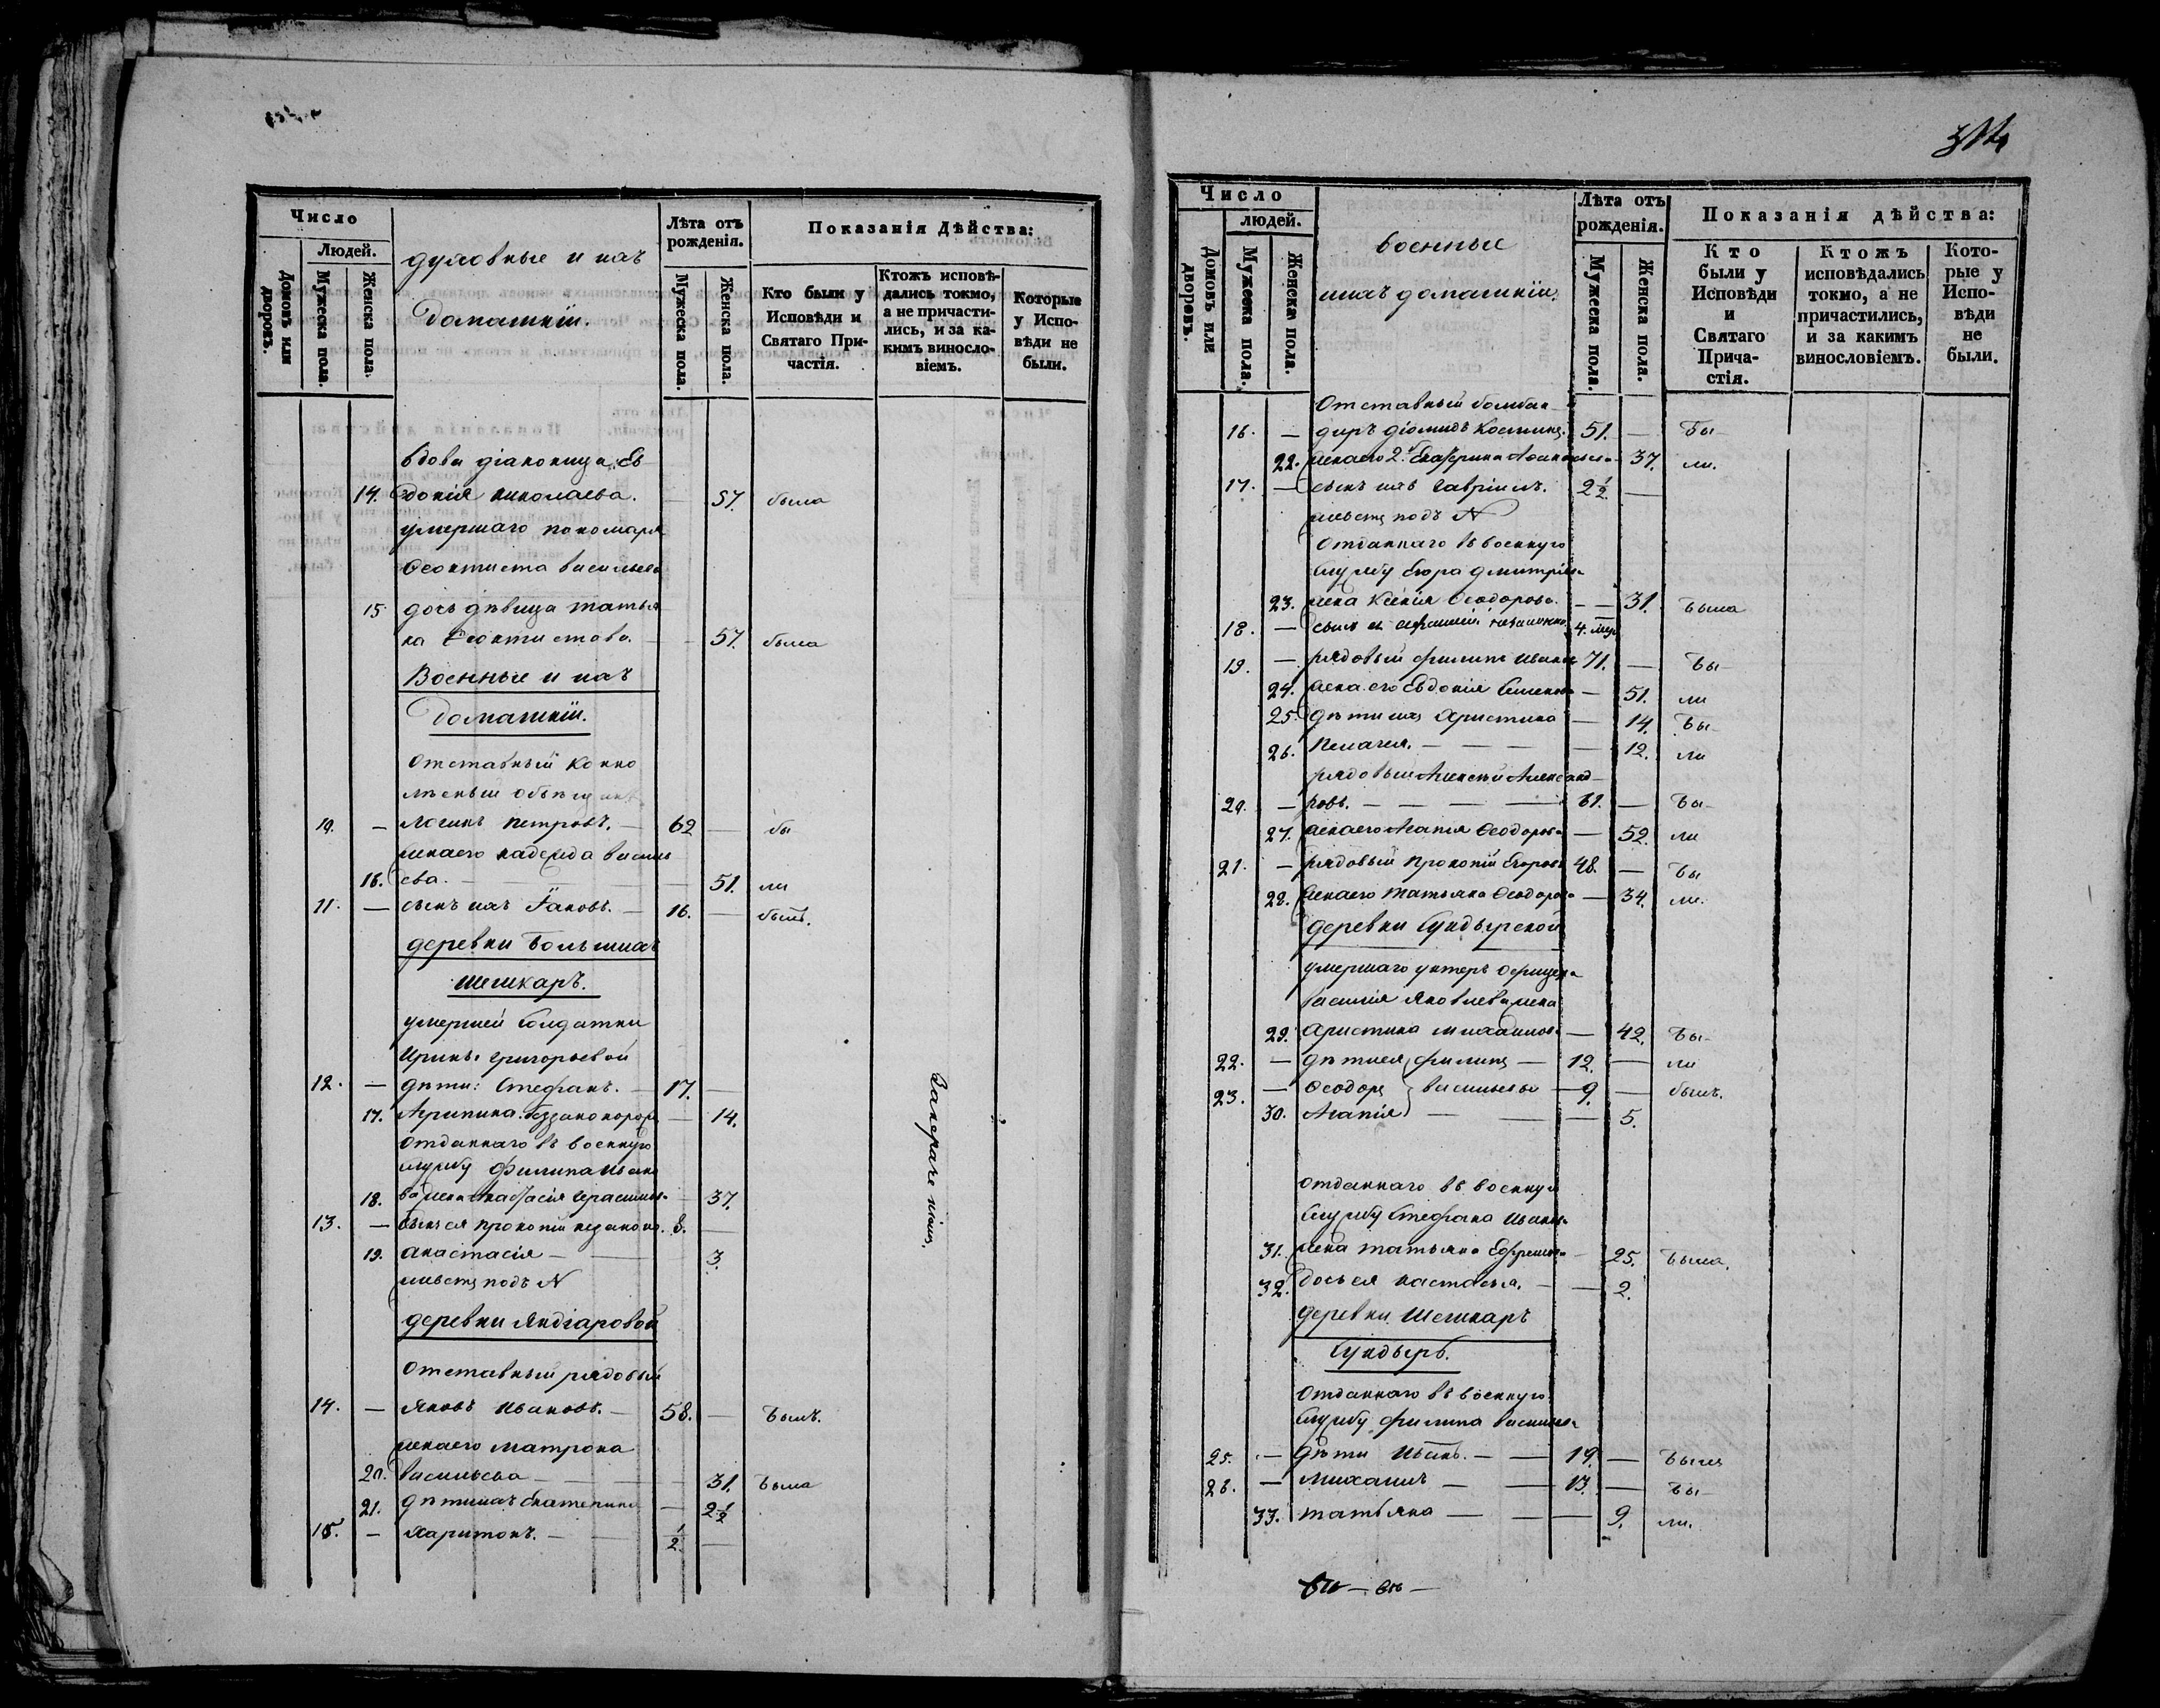 Число
Людей.
Домовъ или дворовъ.
Мужеска пола.
Женска пола.
духовные и ихъ
домашніи.
Лѣта отъ рожденія.
Мужеска пола.
Женска пола.
Показанія Дѣйства:
Кто были у Исповѣди и Святаго Причастія.
Ктожъ исповѣдались токмо, а не причастились, и за какимъ винословіемъ.
Которые у Исповѣди не были.
вдова діаконица Ев
14. докія Николаева. — 57. была
умершаго пономаря
Феоктиста Васильева
15. дочь дѣвица Татья
на Феоктистова. — 57. была
Военные и ихъ
домашніи.
Отставный конно
10. — Логинъ Петровъ. — 62 — бы
жена его Надежда Василь
16. ева. — 51. ли
11. — сынъ ихъ Іаковъ. — 16. — былъ.
деревни Большихъ
Шешкаръ.
умершей солдатки
Ирины Григорьевой
12. — дѣти: Стефанъ. — 17. —
17. Агрипина — 14.
Отданнаго въ военную
службу Филипа Ивано
18. ва жена Герасимова 37.
13. — сынъ ея Прокопій 8. —
19. Анастасія — 3.
подъ N
За перачениемъ.
деревни Яндіаровой
Отставный рядовый
14. — Яковъ Ивановъ. — 58. — Былъ.
жена его Матрона
20. Васильева — 31. Была
21. дѣти ихъ Екатерина — 2 1/2
15. — Харитонъ. — 1/2 —
Число
людей.
Домовъ или дворовъ.
Мужеска пола.
Женска пола.
военные
и ихъ домашніи.
Лѣта отъ рожденія.
Мужеска пола.
Женска пола.
Показанія дѣйства:
Кто были у Исповѣди и Святаго Причастія.
Ктожъ исповѣдались токмо, а не причастились, и за какимъ винословіемъ.
Которые у Исповѣди не были.
Отставный бомбан
16. — диръ Діомидъ Косминъ. 51. — Бы
22. жена его 2. Екатерина 37. ли.
17. — сынъ ихъ Гавріилъ. 2 1/2 —
подъ N
Отданнаго въ военную
службу Егора Дмитріева
23. жена Ксенія Феодорова. — 31. Была
18. — сынъ 4. мц.
19. — рядовый Филипъ Ивановъ 71. — Бы
24. жена его Евдокія Семенова — 51. ли
25. дѣти ихъ Христина — 14. Бы
26. Пелагея. — 12. ли
рядовый Алексѣй Александ
20. — ровъ. — 61. — Бы
27. жена его Агапія Феодорова — 52. ли
21. — рядовый Прокопій Егоровъ 48. — Бы
28. жена его Татьяна Феодорова — 34. ли.
деревни Сундырской
умершаго унтеръ офицера
Василія Яковлева жена
29. Христина Михайлова — 42. Бы
22. — дѣти ея Филипъ — 12. — ли
23. — Феодоръ Васильевы — 9. — былъ.
30. Агапія — 5.
отданнаго въ военную
службу Стефана Иванова
31. жена Татьяна Ефремова — 25. Была.
32. дочь ея Настасья. — 2.
деревни Шешкаръ
Сундыръ.
Отданнаго въ военную
службу Филипа Васильева
25. — дѣти Иванъ. — 19. — Былъ
26. — Михаилъ — 13. — Бы
33. Татьяна — 9. ли.